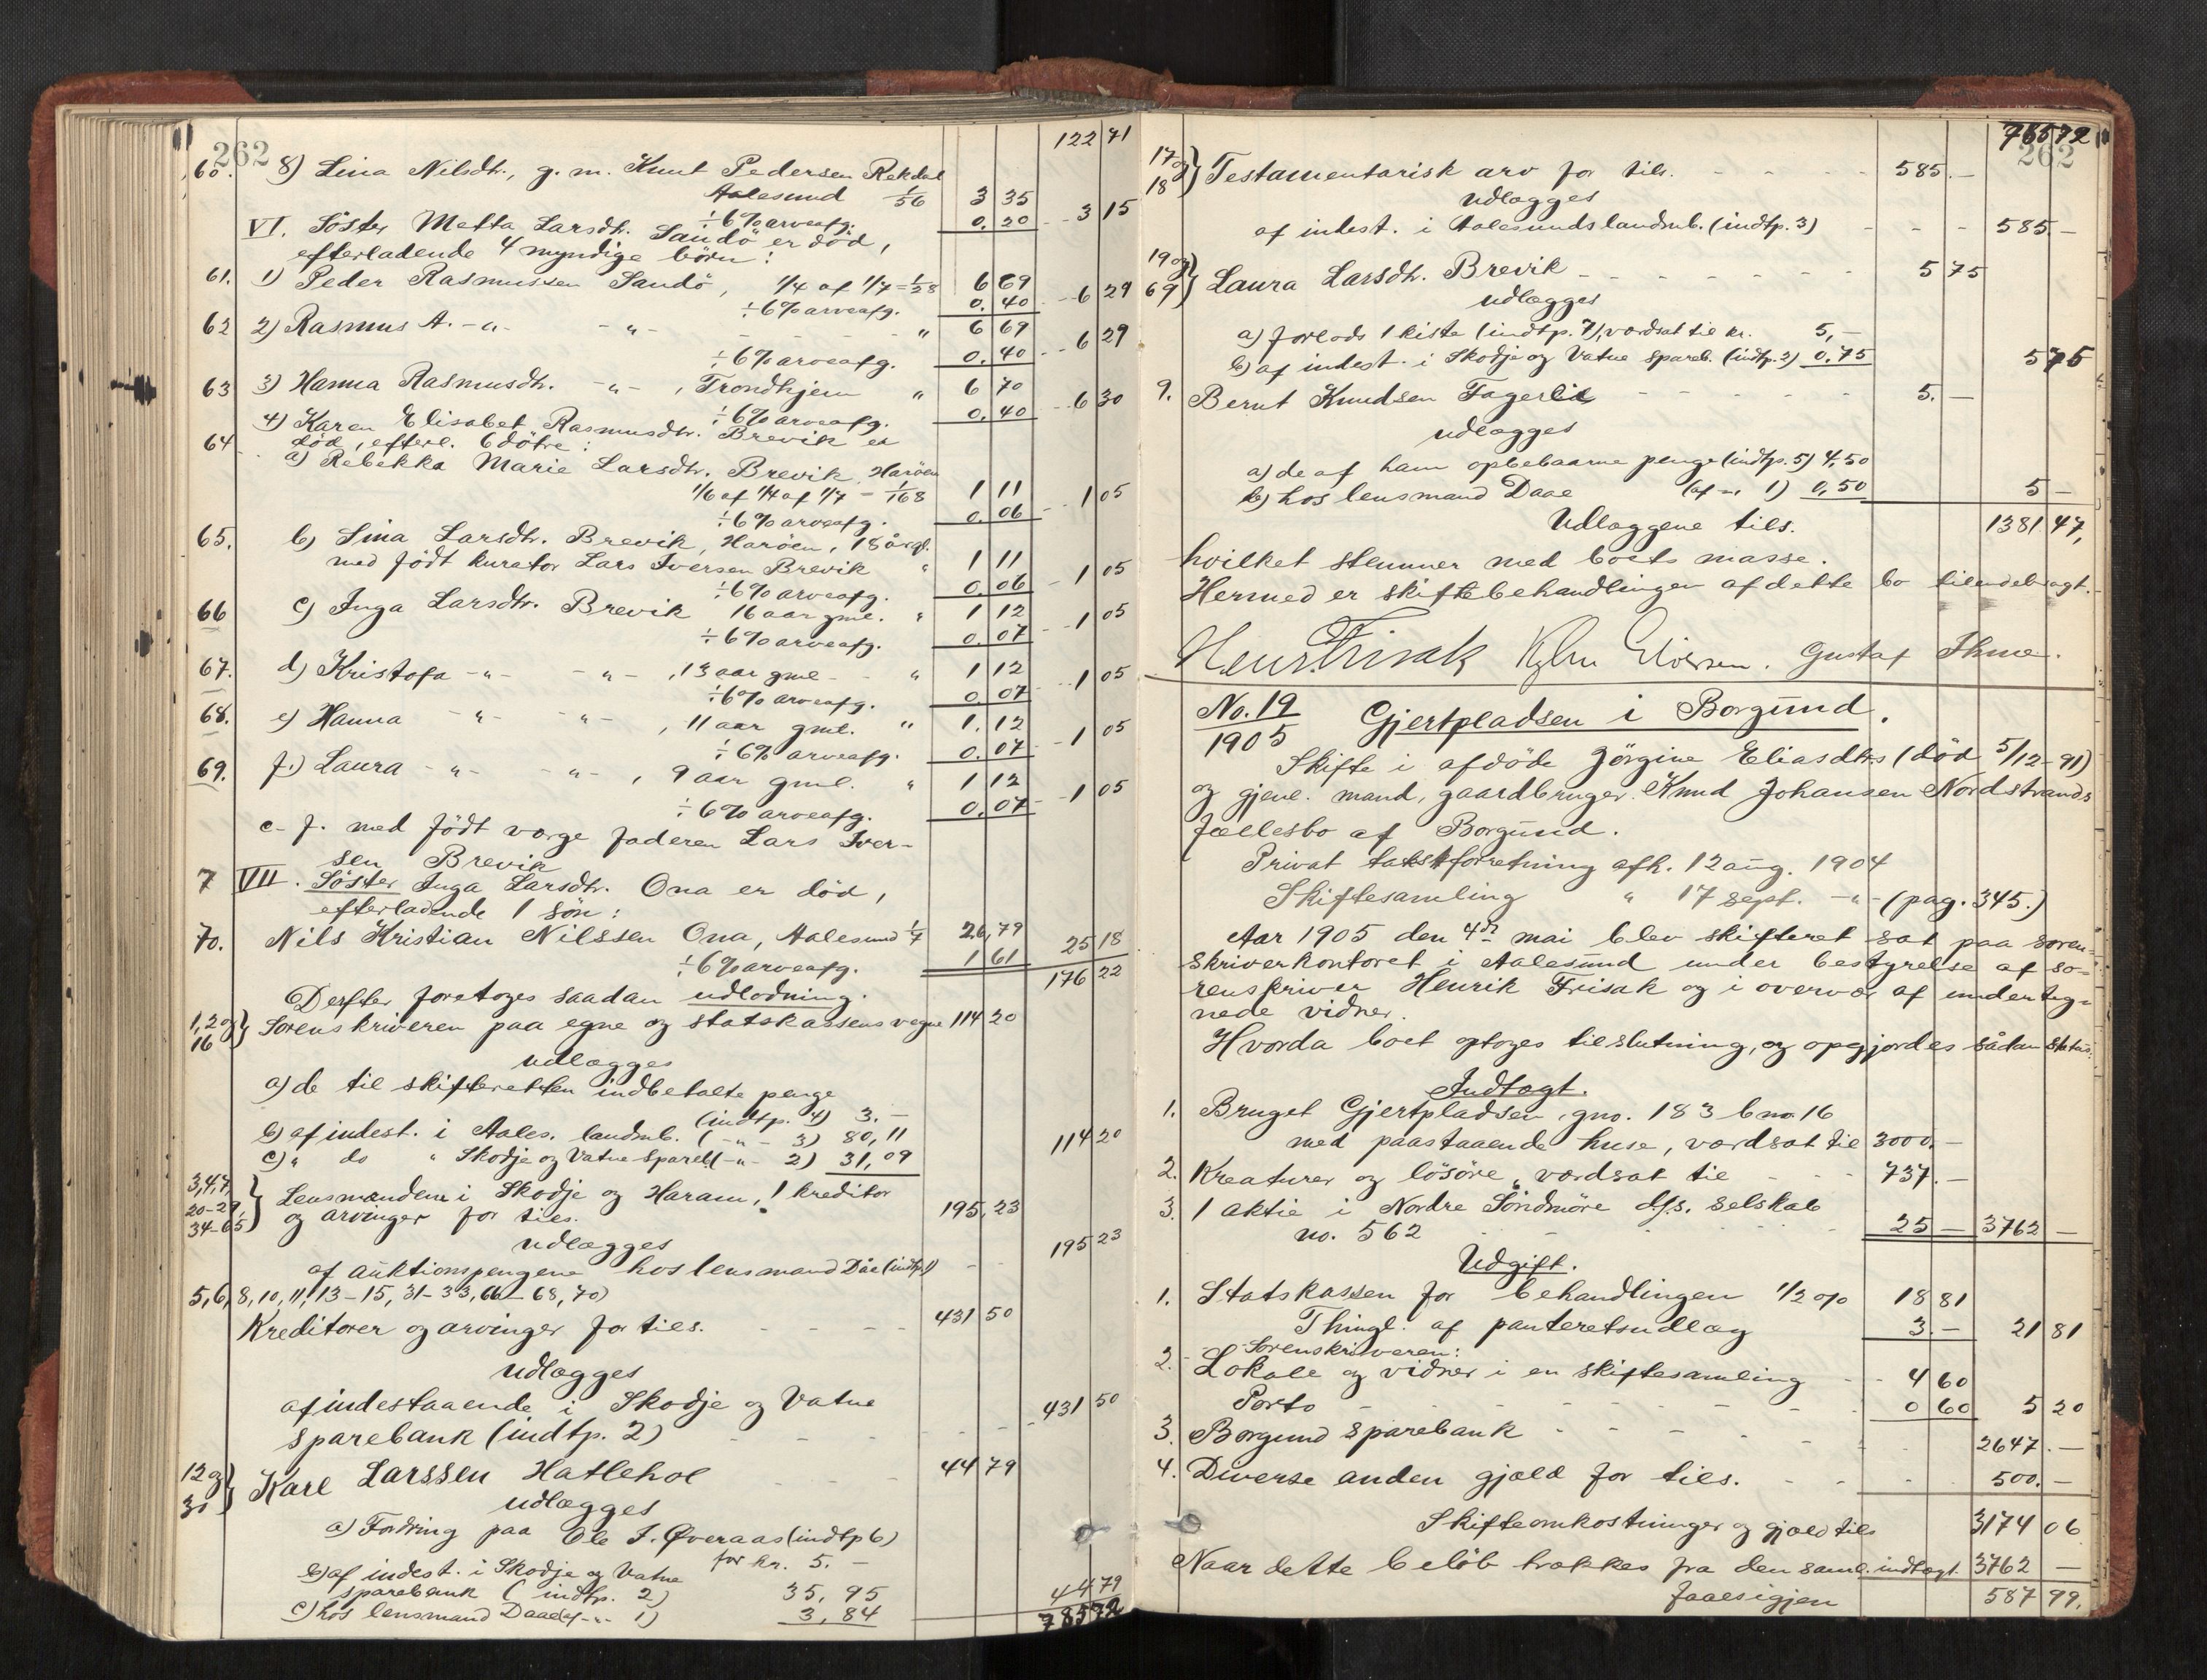 262
122 71
60. 8) Lina Nilsdtr., g. m. Knut Pedersen Rekdal
Aalesund 1/56 3 35
÷ 6 % arveafg. 0. 20 3 15
VI. Söster Metta Larsdtr. Sandö er död,
efterladende 4 myndige börn:
61. 1) Peder Rasmussen Sandö, 1/4 af 1/7 = 1/28 6 69
÷ 6 % arveafg. 0. 40 6 29
62 2) Rasmus A. -"- -"- " 6 69
÷ 6 % arveafg. 0. 40 6 29
63 3) Hanna Rasmusdtr. -"-, Trondhjem " 6 70
÷ 6 % arveafg. 0. 40 6 30
4) Karen Elisabet Rasmusdtr. Brevik er
död, efterl. 6 dötre:
64 a) Rebekka Marie Larsdtr. Brevik, Haröen
1/6 af 1/4 af 1/7 = 1/168 1 11
÷ 6 % arveafg. 0. 06 1 05
65. b) Lina Larsdtr. Brevik, Haröen, 18 år gl.
med födt kurator Lars Iversen Brevik " 1 11
÷ 6 % arveafg. 0. 06 1 05
66 c) Inga Larsdtr. Brevik 16 aar gml. " 1 12
÷ 6 % arveafg. 0. 07 1 05
67. d) Kristofa -"- -"-, 13 aar gml. " 1 12
÷ 6 % arveafg. 0. 07 1 05
68. e) Hanna -"- -"-, 11 aar gml. " 1. 12
÷ 6 % arveafg. 0. 07 1 05
69. f.) Laura -"- -"-, 9 aar gml. " 1 12
÷ 6 % arveafg. 0. 07 1 05
c - f. med födt værge faderen Lars Iver-
sen Brevik
7 VII. Söster Inga Larsdtr. Ona er död,
efterladende 1 sön:
70. Nils Kristian Nilssen Ona, Aalesund 1/7 26, 79
÷ 6 % arveafg. 1 61 25 18
176 22
Derfter foretoges saadan udlodning.
1, 2 og 16 } Sorenskriveren paa egne og statskassens vegne 114 20
udlægges
a) de til skifteretten indbetalte penge
(indtp. 4) 3. -
b) af indest. i Aales. landmb. (-"- 3) 80, 11
c) " do " Skodje og Vatne spareb. (-"- 2) 31, 09 114 20
3, 4, 7, 20-29, 34-65 } Lensmændene i Skodje og Haram, 1 kreditor
og arvinger for tils. 195, 23
udlægges
af auktionspengene hos lensmand Dåe (indtp. 1) 195 23
5, 6, 8, 10, 11, 13 - 15, 31 - 33, 66 - 68, 70)
Kreditorer og arvinger for tils. 431 50
udlægges
af indestaaende i Skodje og Vatne
sparebank (indtp. 2) 431 50
12 og 30 } Karl Larssen Hatlehol 44 79
udlægges
a) Fordring paa Ole I. Øveraas (indtp 6)
for kr. 5. -
b) af indest. i Skodje og Vatne
sparebank (indtp. 2) 35, 95
c) hos lensmand Daae (af -"- 1) 3, 84 44 79
785 72
785 72
262
17 og 18 } Testamentarisk arv for tils. 585. -
udlægges
af indest. i Aalesunds landmb. (indtp. 3) 585. -
19 og 69 } Laura Larsdtr. Brevik 5 75
udlægges
a) forlods 1 kiste (indtp. 7), værdsat til kr. 5, -
b) af indest. i Skodje og Vatne spareb. (indtp. 2) 0, 75 5 75
9. Bernt Knudsen Fagerli 5. -
udlægges
a) de af ham opbebaarne penge (indtp. 5) 4, 50
b) hos lensmand Daae (af -"- 1) 0, 50 5 -
Udlæggene tils. 1381 47,
hvilket stemmer med boets masse.
Hermed er skiftebehandlingen af dette bo tilendebragt.
Henr. Frisak Gustaf Thue.
No. 19
1905 Gjertpladsen i Borgund.
Skifte i afdöde Jörgine Eliasdtrs (död 5/12 - 91)
og gjenl. mand, gaardbruger Knud Johansen Nordstrands
fællesbo af Borgund.
Privat takstforretning afh. 12 aug. 1904
Skiftesamling " 17 sept. -"- (pag. 345.)
Aar 1905 den 4de mai blev skifteret sat paa soren-
skriverkontoret i Aalesund under bestyrelse af so-
renskriver Henrik Frisak og i overvær af underteg-
nede vidner.
Hvorda boet optoges til slutning, og opgjordes sådan status.
Indtægt.
1. Bruget Gjertpladsen, gno. 183 bno 16
med paastaaende huse, værdsat til 3000. -
2. Kreaturer og lösöre, værdsat til 737. -
3. 1 aktie i Nordre Söndmöre d/s. selskab
no. 562 25 - 3762 -
Udgift.
1. Statskassen for behandlingen 1/2 % 18 81
Thingl. af panteretsudlæg 3. - 21 81
Sorenskriveren:
2. Lokale og vidner i en skiftesamling 4 60
Porto 0 60 5 20
3. Borgund sparebank 2647. -
4. Diverse anden gjæld for tils. 500. -
Skifteomkostninger og gjæld tils 3174 06
Naar dette belöb trækkes fra den saml. indtægt 3762 -
faaes igjen 587 99.